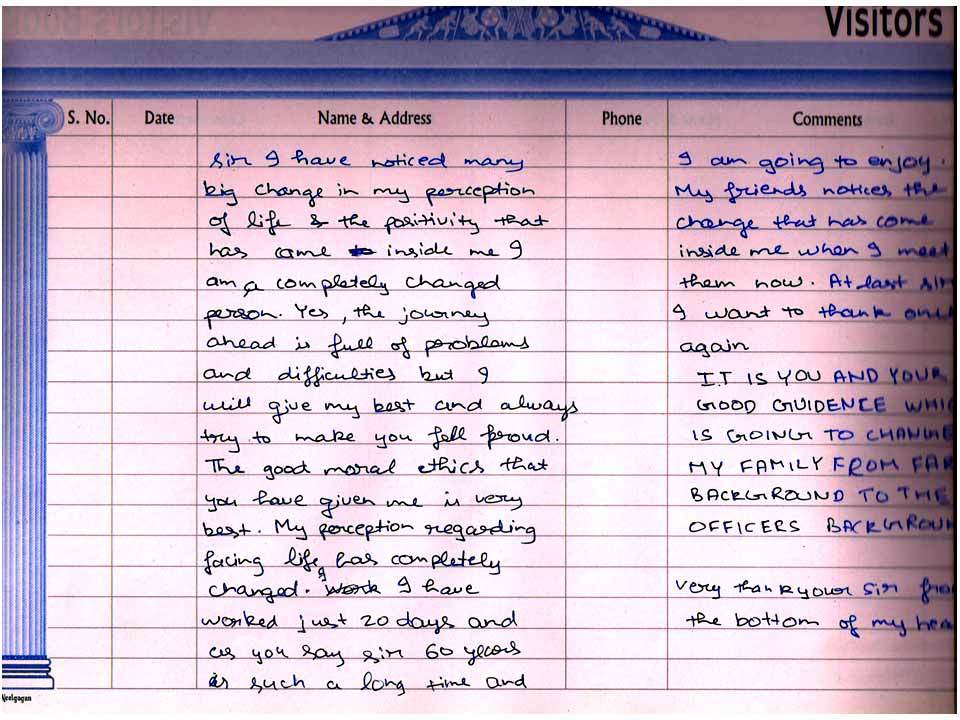 Visitors
S. No.
Date
Name & Address
Phone
Comments
sir I have noticed many
big change in my perception
of life & the positivity that
has come inside me I
am a completely changed
person. Yes, the journey
ahead is full of problems
and difficulties but I
will give my best and always
try to make you fell proud.
The good moral ethics that
you have given me is very
best. My perception regarding
facing life has completely
changed. I have
worked just 20 days and
as you say sir 60 years
is such a long time and
I am going to enjoy.
My friends notices the
change that has come
inside me when I meet
them now. At last sir
I want to thank
again
IT IS YOU AND YOUR
GOOD GUIDENCE WHIC
IS GOING TO CHANGE
MY FAMILY FROM FAR
BACKGROUND TO THE
OFFICERS BACKGROUN
very thank your sir fro
the bottom of my hea
Neelgagan